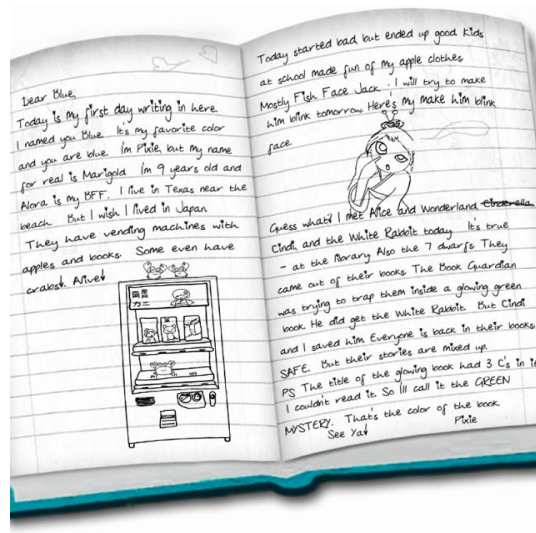 Dear Blue,
Today is my first day writing in here.
I named you Blue. It's my favorite color
and you are blue. I'm Pixie, but my name
for real is Marigold. I'm 9 years old and
Alora is my BFF. I live in Texas near the
beach. But I wish I lived in Japan.
They have vending machines with
apples and books. Some even have
crabs! Alive!
Today started bad but ended up good. Kids
at school made fun of my apple clothes.
Mostly Fish Face Jack. I will try to make
him blink tomorrow. Here's my make him blink
face.
Guess what? I met Alice and Wonderland Cinderella
Cindi, and the White Rabbit today. It's true
- at the library. Also the 7 dwarfs. They
came out of their books. The Book Guardian
was trying to trap them inside a glowing green
book. He did get the White Rabbit. But Cindi
and I saved him. Everyone is back in their books.
SAFE. But their stories are mixed up.
PS The title of the glowing book had 3 C's in it.
I couldn't read it. So I'll call it the GREEN
MYSTERY. That's the color of the book.
See Ya!
Pixie